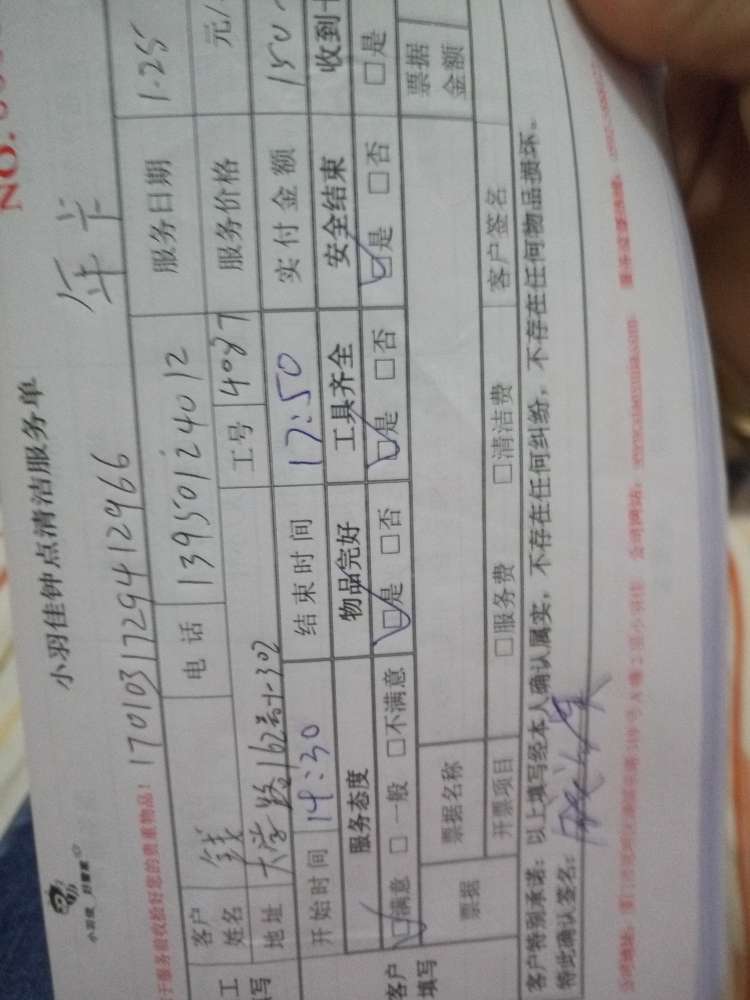 小羽佳钟点清洁服务单
NO.
小羽佳 好管家
年卡
于服务前收拾好您的贵重物品！ 17010317294412966
工 客户姓名 钱 电话 13950124012 服务日期 1.25
填写 地址 大学路162号 302 工号 4087 服务价格 元/
开始时间 14:30 结束时间 17:50 实付金额 150
客户填写 服务态度 物品完好 工具齐全 安全结束 收到
☑满意 □一般 □不满意 ☑是 □否 ☑是 □否 ☑是 □否 □是
票据 票据名称 票据金额
开票项目 □服务费 □清洁费 客户签名
客户特别承诺：以上填写经本人确认属实，不存在任何纠纷，不存在任何物品损坏。
特此确认签名：
公司地址： 公司网站：